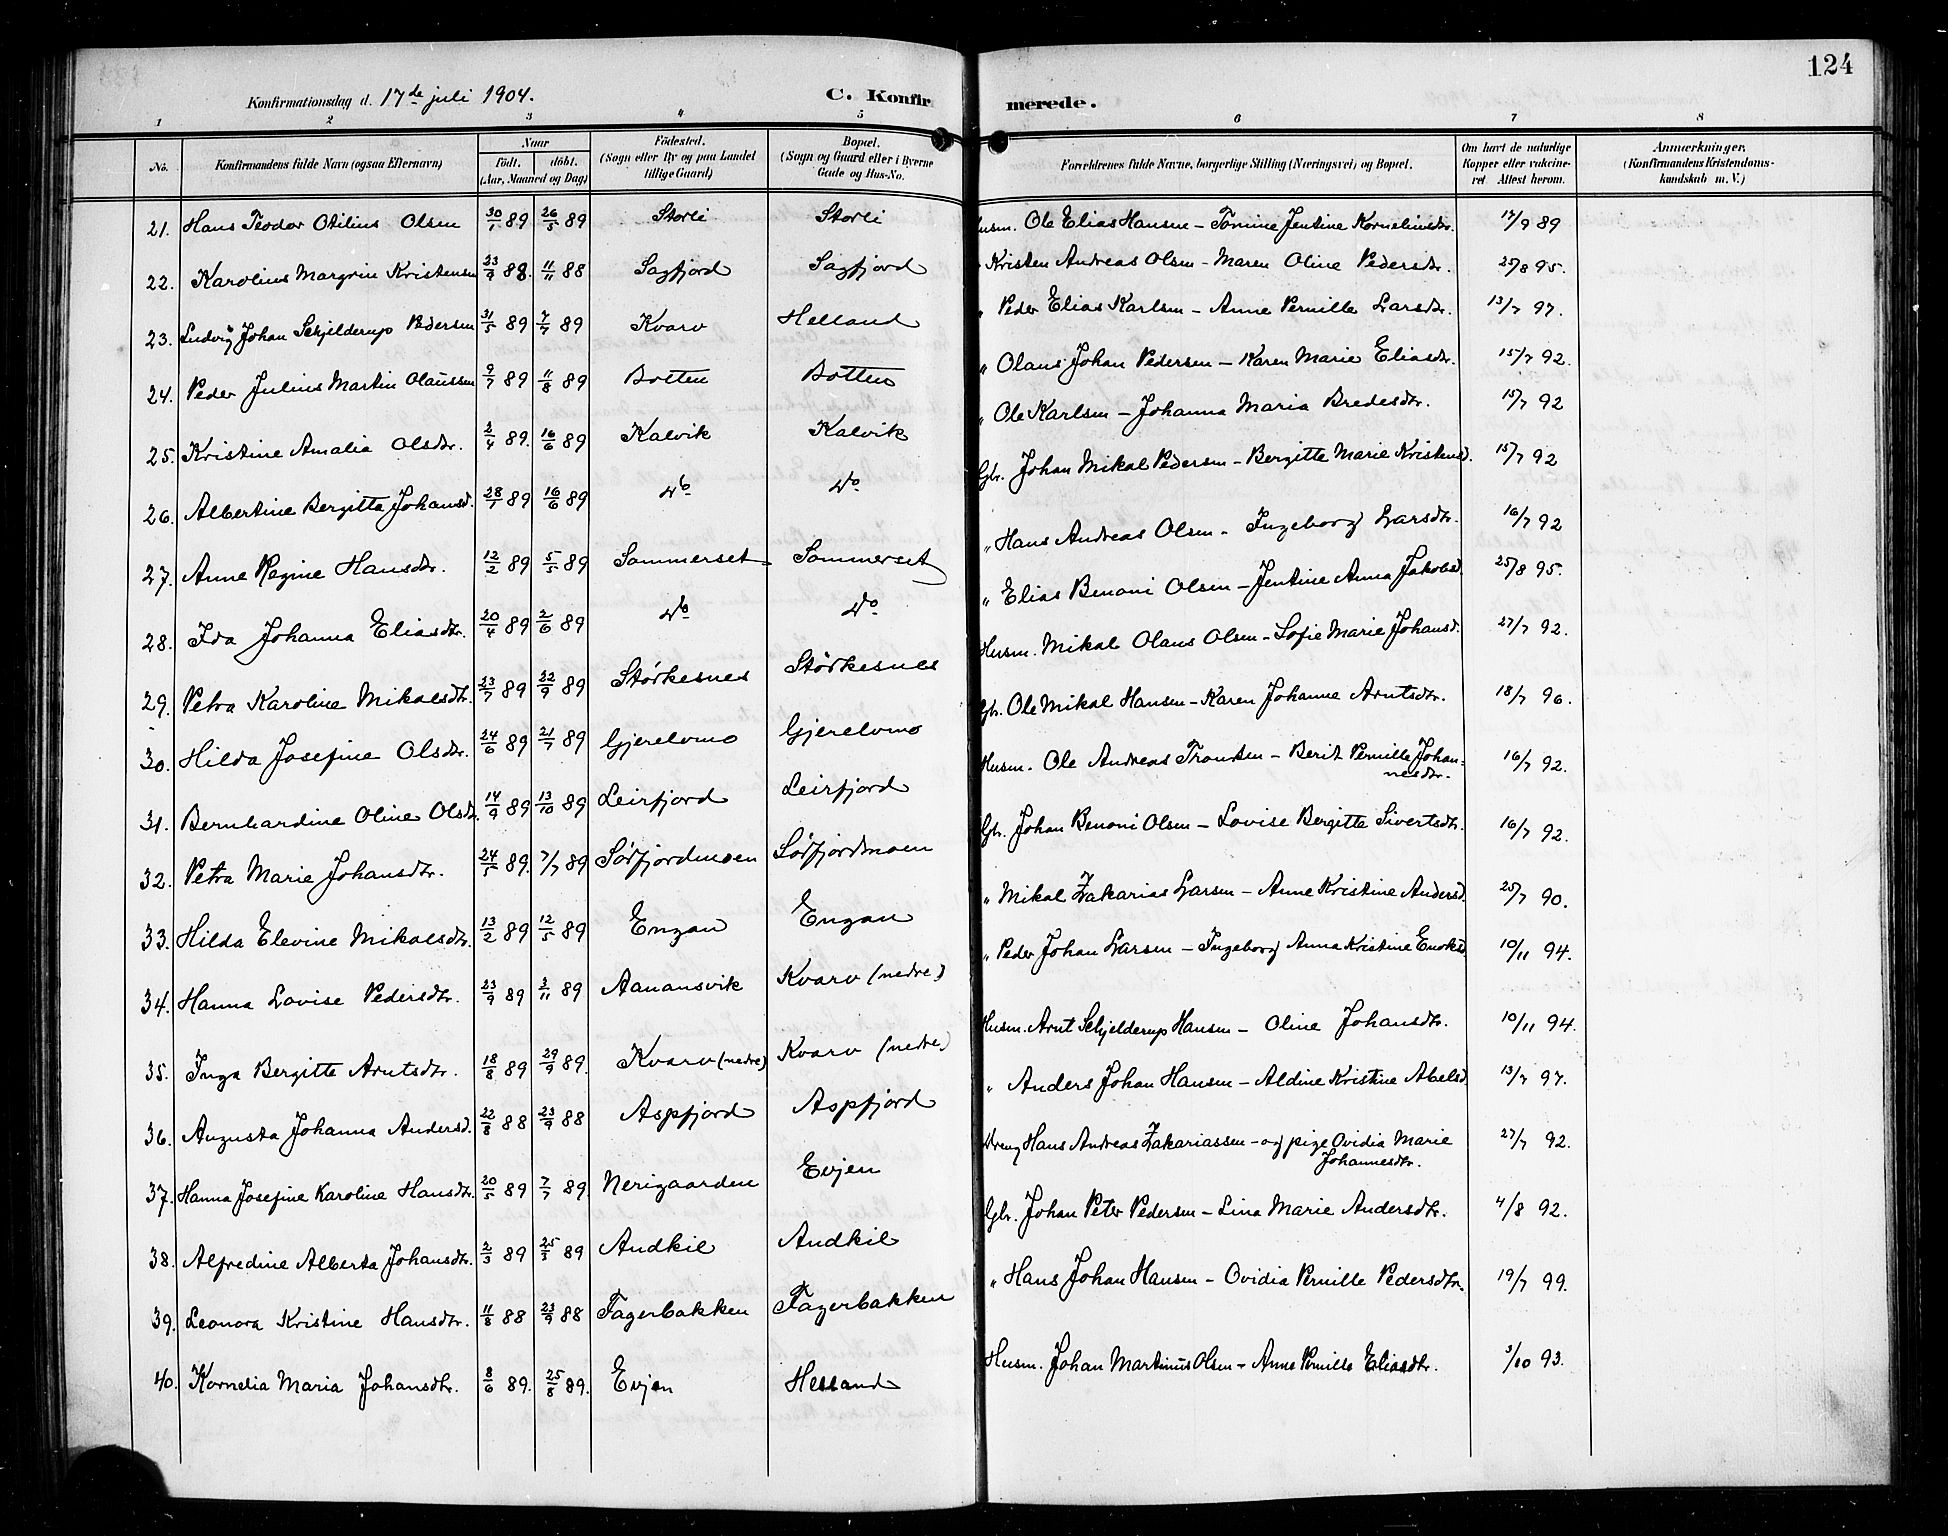 124
Konfirmationsdag d. 17de juli 1904. C. Konfirmerede.
1 2 3 4 5 6 7 8
No. Konfirmandens fulde Navn (ogsaa Efternavn) Naar født. døbt. (Aar, Maaned og Dag) Fødested. (Sogn eller By og paa Landet tillige Gaard) Bopæl. (Sogn og Gaard eller i Byerne Gade og Hus-No. Forældrenes fulde Navne, borgerlige Stilling (Næringsvei) og Bopæl. Om havt de naturlige Kopper eller vakcineret Attest herom. Anmærkninger. (Konfirmandens Kristendomskundskab m. V.)
21. Hans Teodor Otilius Olsen 30/1 89 26/5 89 Storli Storli Husm. Ole Elias Hansen - Tomine Jentine Korneliusdtr. 17/9 89
22. Karolius Margrin Kristensen 23/9 88. 11/11 88 Sagfjord Sagfjord " Kristen Andreas Olsen - Maren Oline Pedersdtr. 25/8 95.
23. Ludvig Johan Schjelderup Pedersen 31/5 89 7/7 89 Kvarv Helland " Peder Elias Karlsen - Anne Pernille Larsdtr. 13/7 97.
24. Peder Julius Martin Olaussen 9/7 89 11/8 89 Botten Botten " Olaus Johan Pedersen - Karen Marie Eliasdtr. 15/7 92.
25. Kristine Amalia Olsdtr. 2/4 89. 16/6 89 Kalvik Kalvik " Ole Karlsen - Johanna Maria Bredesdtr. 15/7 92
26. Albertine Bergitta Johansd. 28/1 89 16/6 89 do do Gbr. Johan Mikal Pedersen - Bergitte Marie Kristensd. 15/7 92
27. Anne Regine Hansdtr. 12/2 89 5/5 89 Sommerset Sommerset " Hans Andreas Olsen - Ingeborg Larsdtr. 16/7 92
28. Ida Johanna Eliasdtr. 20/4 89 2/6 89 do do " Elias Benoni Olsen - Jentine Anna Jakobsd. 25/8 95.
29. Petra Karoline Mikalsdtr. 23/7 89 22/9 89 Størkesnes Størkesnes Husm. Mikal Olaus Olsen - Sofie Marie Johansd. 27/7 92.
30. Hilda Josefine Olsdtr. 24/6 89 21/7 89 Gjerelvmo Gjerelvmo Gbr. Ole Mikal Hansen - Karen Johanne Arntsdtr. 18/7 96.
31. Bernhardine Oline Olsdtr. 14/9 89 13/10 89 Leirfjord Leirfjord Husm. Ole Andreas Trondsen - Berit Pernille Johannesdtr. 16/7 92.
32. Petra Marie Johansdtr. 24/5 89. 7/7 89 Sørfjordmoen Sørfjordmoen Gbr. Johan Benoni Olsen - Lovise Bergitte Sivertsdtr. 16/7 92.
33. Hilda Elevine Mikalsdtr. 13/2 89 12/5 89 Engan Engan " Mikal Zakarias Larsen - Anne Kristine Andersd. 25/7 90.
34. Hanna Lovise Pedersdtr. 23/9 89 3/11 89 Aanansvik Kvarv (nedre) " Peder Johan Larsen - Ingeborg Anna Kristine Enoksd. 10/11 94.
35. Inga Bergitte Arntsdtr. 18/8 89 29/9 89. Kvarv (nedre) Kvarv (nedre) Husm. Arnt Schjelderup Hansen - Oline Johansdtr. 10/11 94.
36. Augusta Johanna Andersd. 22/8 88 23/9 88 Aspfjord Aspfjord " Anders Johan Hansen - Aldine Kristine Abelsd. 13/7 97.
37. Hanna Josefine Karoline Hansdtr. 20/5 89 7/7 89. Nerigaarden Evjen Dreng Hans Andreas Zakariassen - og pige Ovidia Marie Johannesdtr. 27/7 92.
38. Alfredine Alberta Johansdtr. 2/3 89 25/3 89 Andkil Andkil Gbr. Johan Peter Pedersen - Lina Marie Andersdtr. 4/8 92.
39. Leonora Kristine Hansdtr. 11/8 88 23/9 88 Fagerbakken Fagerbakken " Hans Johan Hansen - Ovidia Pernille Pedersdtr. 19/7 99.
40. Kornelia Maria Johansdtr. 8/6 89. 25/8 89. Evjen Helland Husm. Johan Martinus Olsen - Anne Pernille Eliasdtr. 3/10 93.